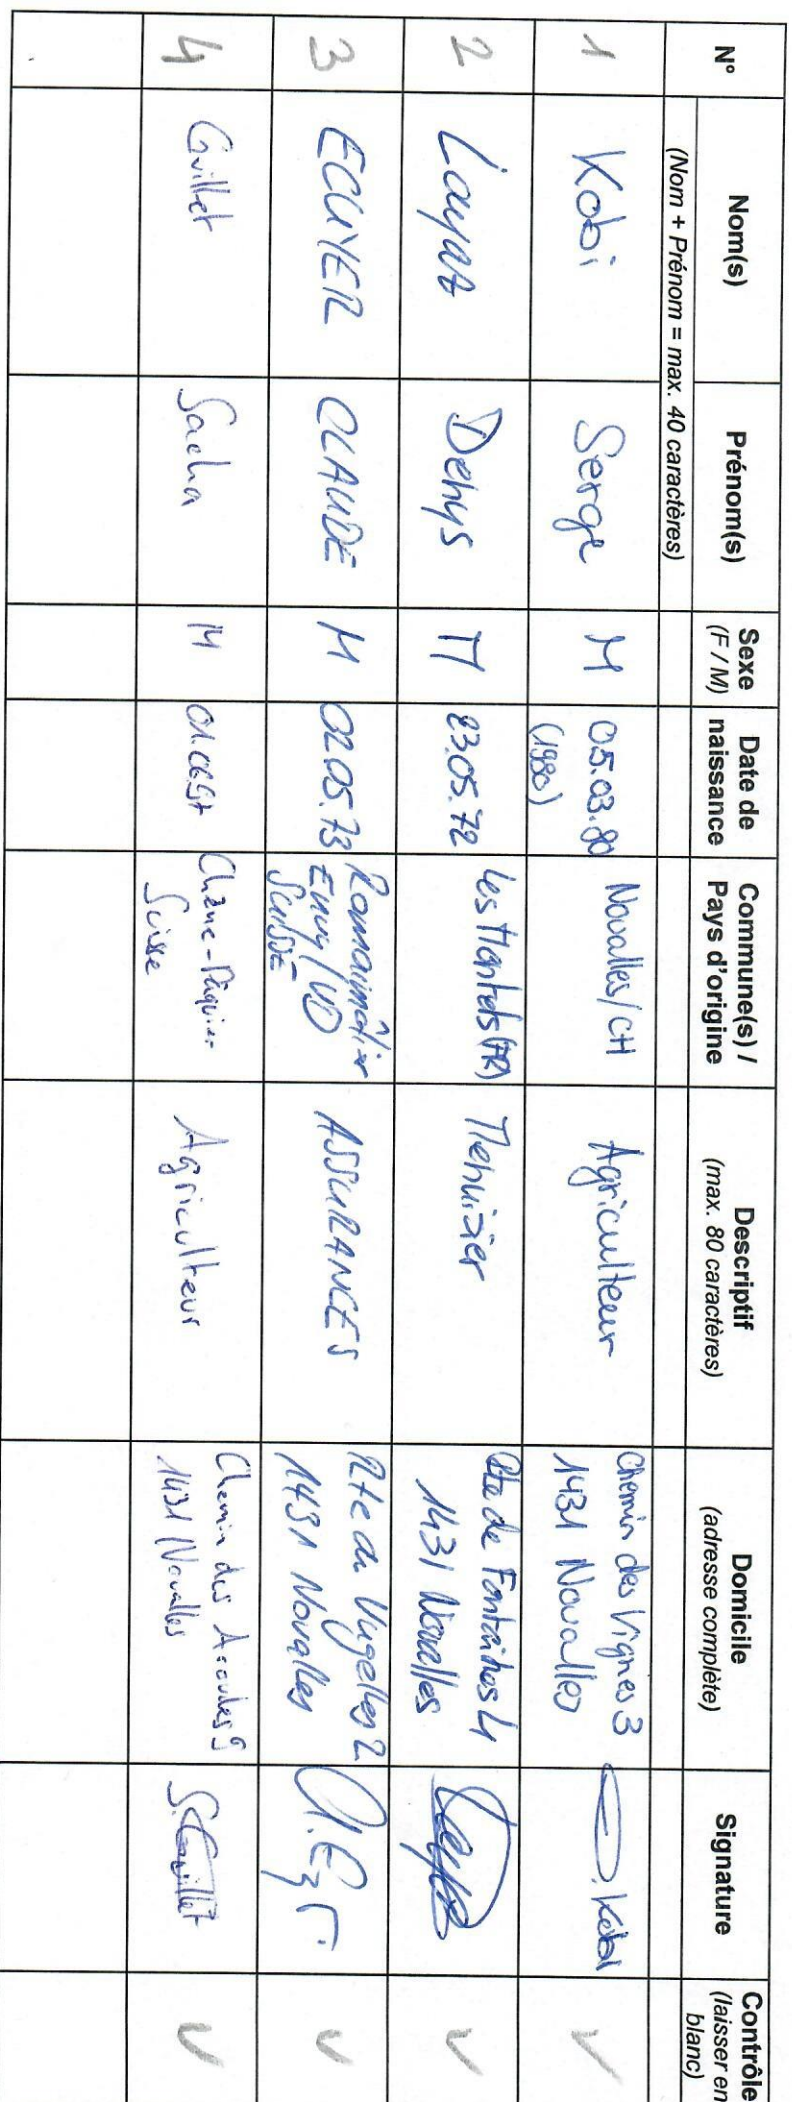 N° Nom(s) Prénom(s) Sexe (F / M) Date de naissance Commune(s) / Pays d'origine Descriptif (max. 80 caractères) Domicile (adresse complète) Signature Contrôle (laisser en blanc)
(Nom + Prénom = max. 40 caractères)
1 Kobi Serge M 05.03.80 Novalles/CH Agriculteur Chemin des Vignes 3
(1980) 1431 Novalles
S. Kobi
2 Layaz Denys M 23.05.72 Les Montets (FR) Menuisier Rte de Fontaines 4
1431 Novalles
3 ECUYER CLAUDE M 02.05.73 Romainmôtier
Envy/VD
SUISSE
ASSURANCES Rte de Vugelles 2
1431 Novalles
4 Guillet Sacha M Chêne-Pâquier
Suisse
Agriculteur Chemin des 9
1431 Novalles
S. Guillet